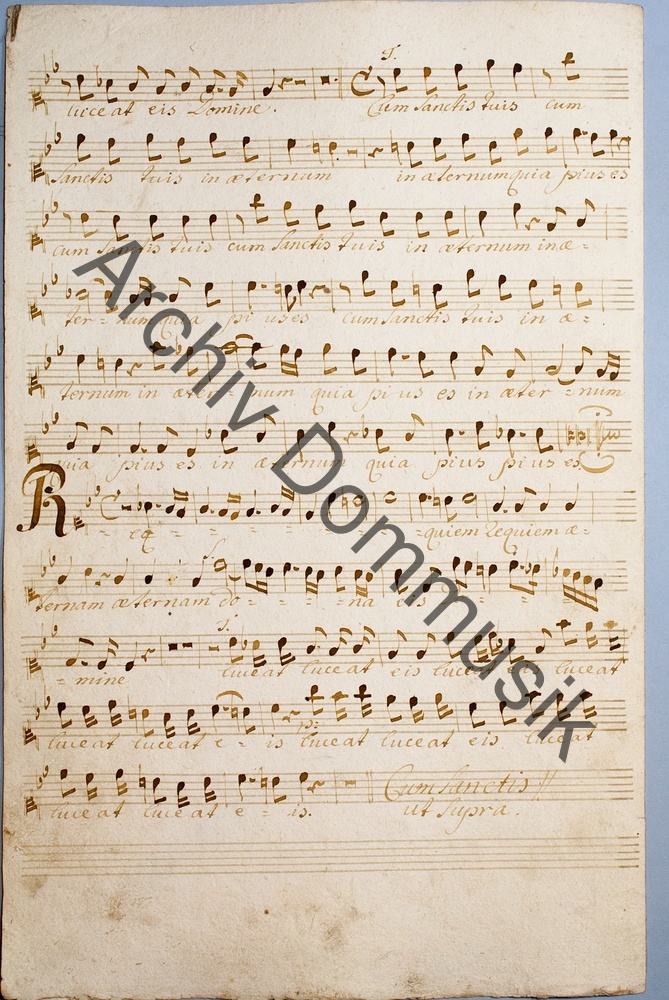 T.
luceat eis Domine. Cum Sanctis tuis cum
Sanctis tuis in æternum in æternum quia pius es
cum Sanctis tuis cum Sanctis tuis in æternum in æ-
ter- num quia pi us es cum Sanctis tuis in æ-
ternum in æter- num quia pi us es in æter- num
quia pius es in æternum quia pius pi us es
R
eq - - - - - - quiem Requiem æ-
ternam æternam do - - - na eis - - - -
T.
- mine luceat luceat eis luceat luceat
p:
luceat luceat e - is luceat luceat eis luceat
luceat luceat e - is. Cum Sanctis
ut Supra.
Archiv Dommusik